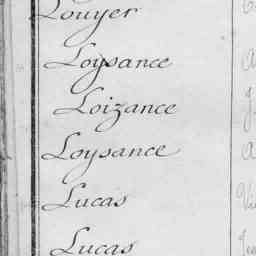 Louyer
Loysance
Loizance
Loysance
Lucas
Lucas